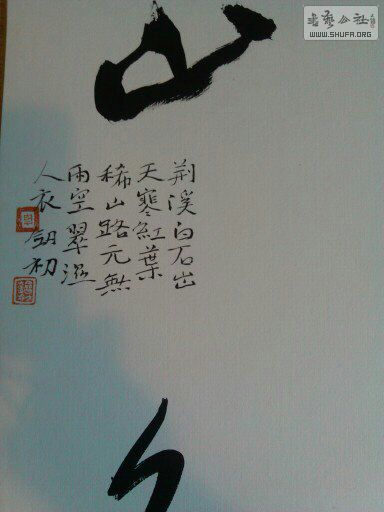 山
荆溪白石出
天寒紅葉
稀山路元無
雨空翠溼
人衣 初
书艺公社
WWW.SHUFA.ORG